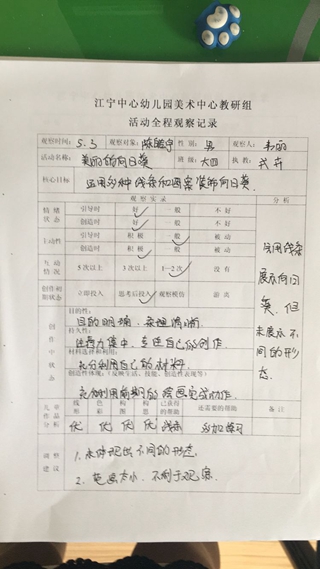 江宁中心幼儿园美术中心教研组
活动全程观察记录
观察时间: 5.3 观察对象: 性别: 男 观察人:
活动名称: 美丽的向日葵 班级: 大四 执教:
核心目标 运用多种线条和图案装饰向日葵
观察实录 分析
情绪状态 引导时 好 一般 不好
创造时 好 一般 不好
主动性 引导时 积极 一般 被动
创造时 积极 一般 被动
互动情况 5次以上 3次以上 1—2次 没有
创作初期状态 立即投入 思考后投入 观察模仿 游离
能用线条
展示向日
葵,但
未展示不
同的形
态
创作中状态
目的性:
目的明确,
持久性:
注意力集中,
材料选择和利用:
充分利用自己的材料
创造性体现:(反映生活、技能、创造性表现等)
儿童作品分析 线形 色彩 构图 构思 已获得的经验 还需要的帮助 备注
优 优 优 优 线条 多加练习
调整建议
1. 未体现出不同的形态
2. 范画太小,不利于观察